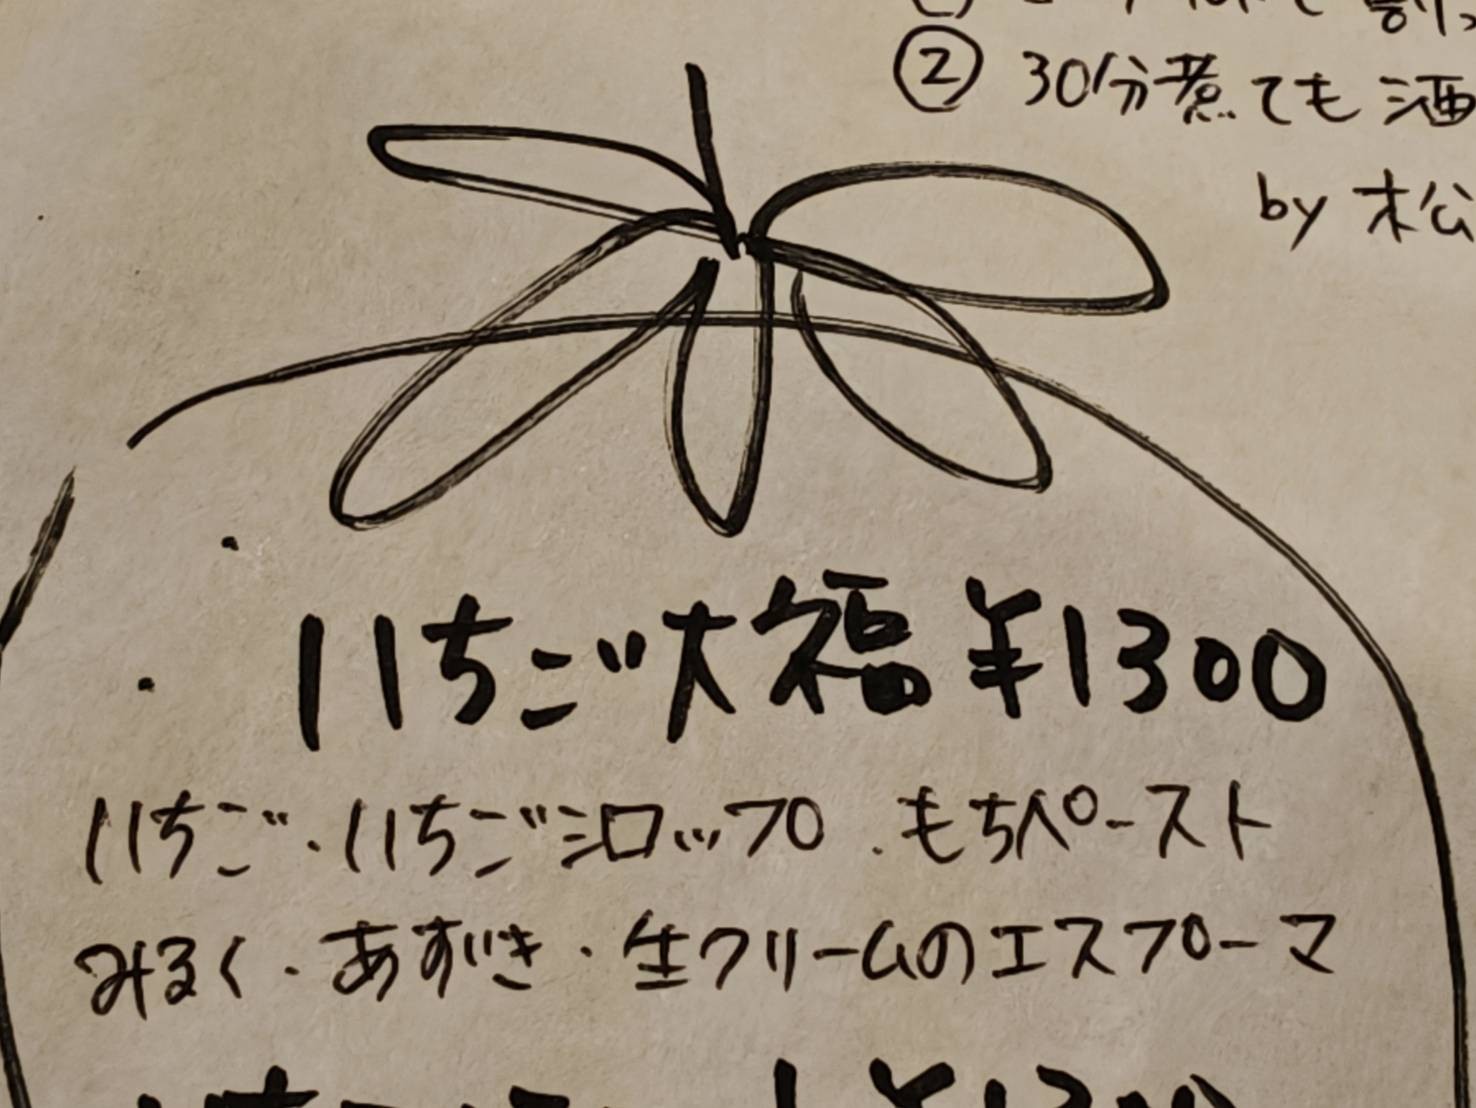 ② 30分煮ても酒
by 松
いちご大福 ¥1300
いちご・いちごシロップ・もちペースト
みるく・あずき・生クリームのエスプーマ